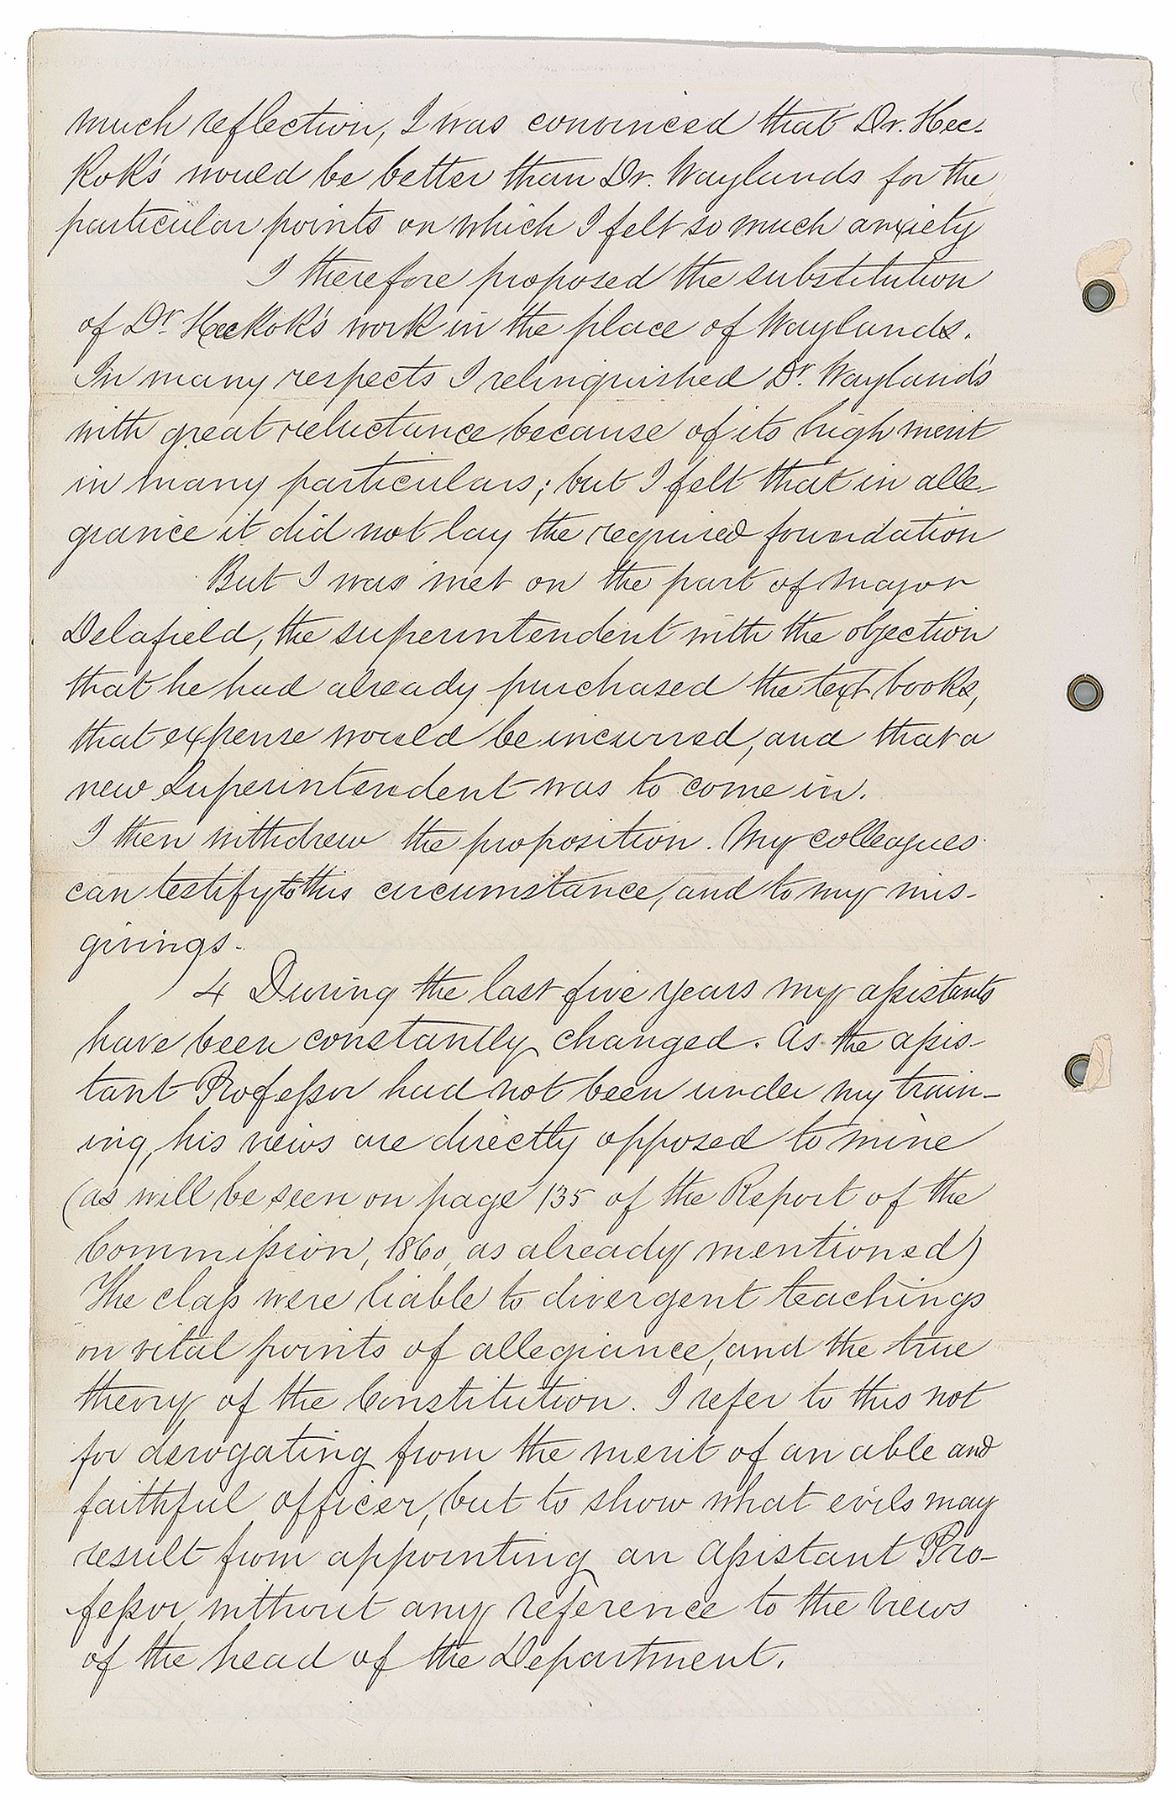 much reflection, I was convinced that Dr. Hec-
kok's would be better than Dr. Waylands for the
particular points on which I felt so much anxiety
I therefore proposed the substitution
of Dr Heckok's work in the place of Waylands.
In many respects I relinquished Dr. Wayland's
with great reluctance because of its high merit
in many particulars; but I felt that in alle-
giance it did not lay the required foundation
But I was met on the part of Major
Delafield, the superintendent with the objection
that he had already purchased the text books,
that expense would be incurred, and that a
new Superintendent was to come in.
I then withdrew the proposition. My colleagues
can testify to this circumstance, and to my mis-
givings.
4 During the last five years my assistants
have been constantly changed. As the assis-
tant Professor had not been under my train-
ing, his views are directly opposed to mine
(as will be seen on page 135 of the Report of the
Commission, 1860, as already mentioned)
The class were liable to divergent teachings
on vital points of allegiance, and the true
theory of the Constitution. I refer to this not
for derogating from the merit of an able and
faithful officer, but to show what evils may
result from appointing an Assistant Pro-
fessor, without any reference to the views
of the head of the Department.